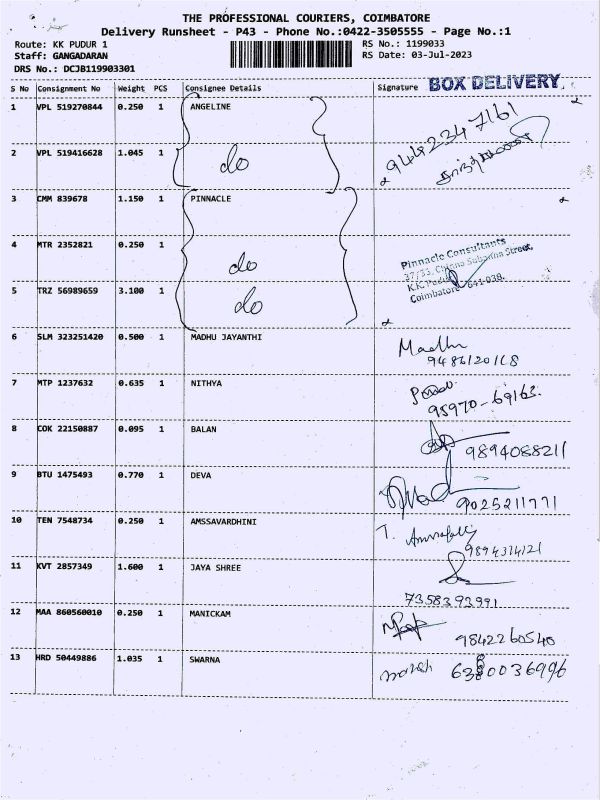 THE PROFESSIONAL COURIERS, COIMBATORE
Delivery Runsheet - P43 - Phone No.:0422-3505555 - Page No.:1
Route: KK PUDUR 1 RS No.: 1199033
Staff: GANGADARAN RS Date: 03-Jul-2023
DRS No.: DCJB119903301
BOX DELIVERY
S No Consignment No Weight PCS Consignee Details Signature
1 VPL 519270844 0.250 1 ANGELINE
9442347161
2 VPL 519416628 1.045 1 do
3 CMM 839678 1.150 1 PINNACLE
4 MTR 2352821 0.250 1 do
Pinnacle Consultants
37/33, Chinna Subanna Street,
K.K. Pudur
Coimbatore 641-038.
5 TRZ 56989659 3.100 1 do
6 SLM 323251420 0.500 1 MADHU JAYANTHI Madhu
9486120118
7 MTP 1237632 0.635 1 NITHYA
95970-69163.
8 COK 22150887 0.095 1 BALAN 9894088211
9 BTU 1475493 0.770 1 DEVA
9025211771
10 TEN 7548734 0.250 1 AMSSAVARDHINI T.
9894314121
11 KVT 2857349 1.600 1 JAYA SHREE
7358393991
12 MAA 860560010 0.250 1 MANICKAM
9842260540
13 HRD 50449886 1.035 1 SWARNA 6380036996